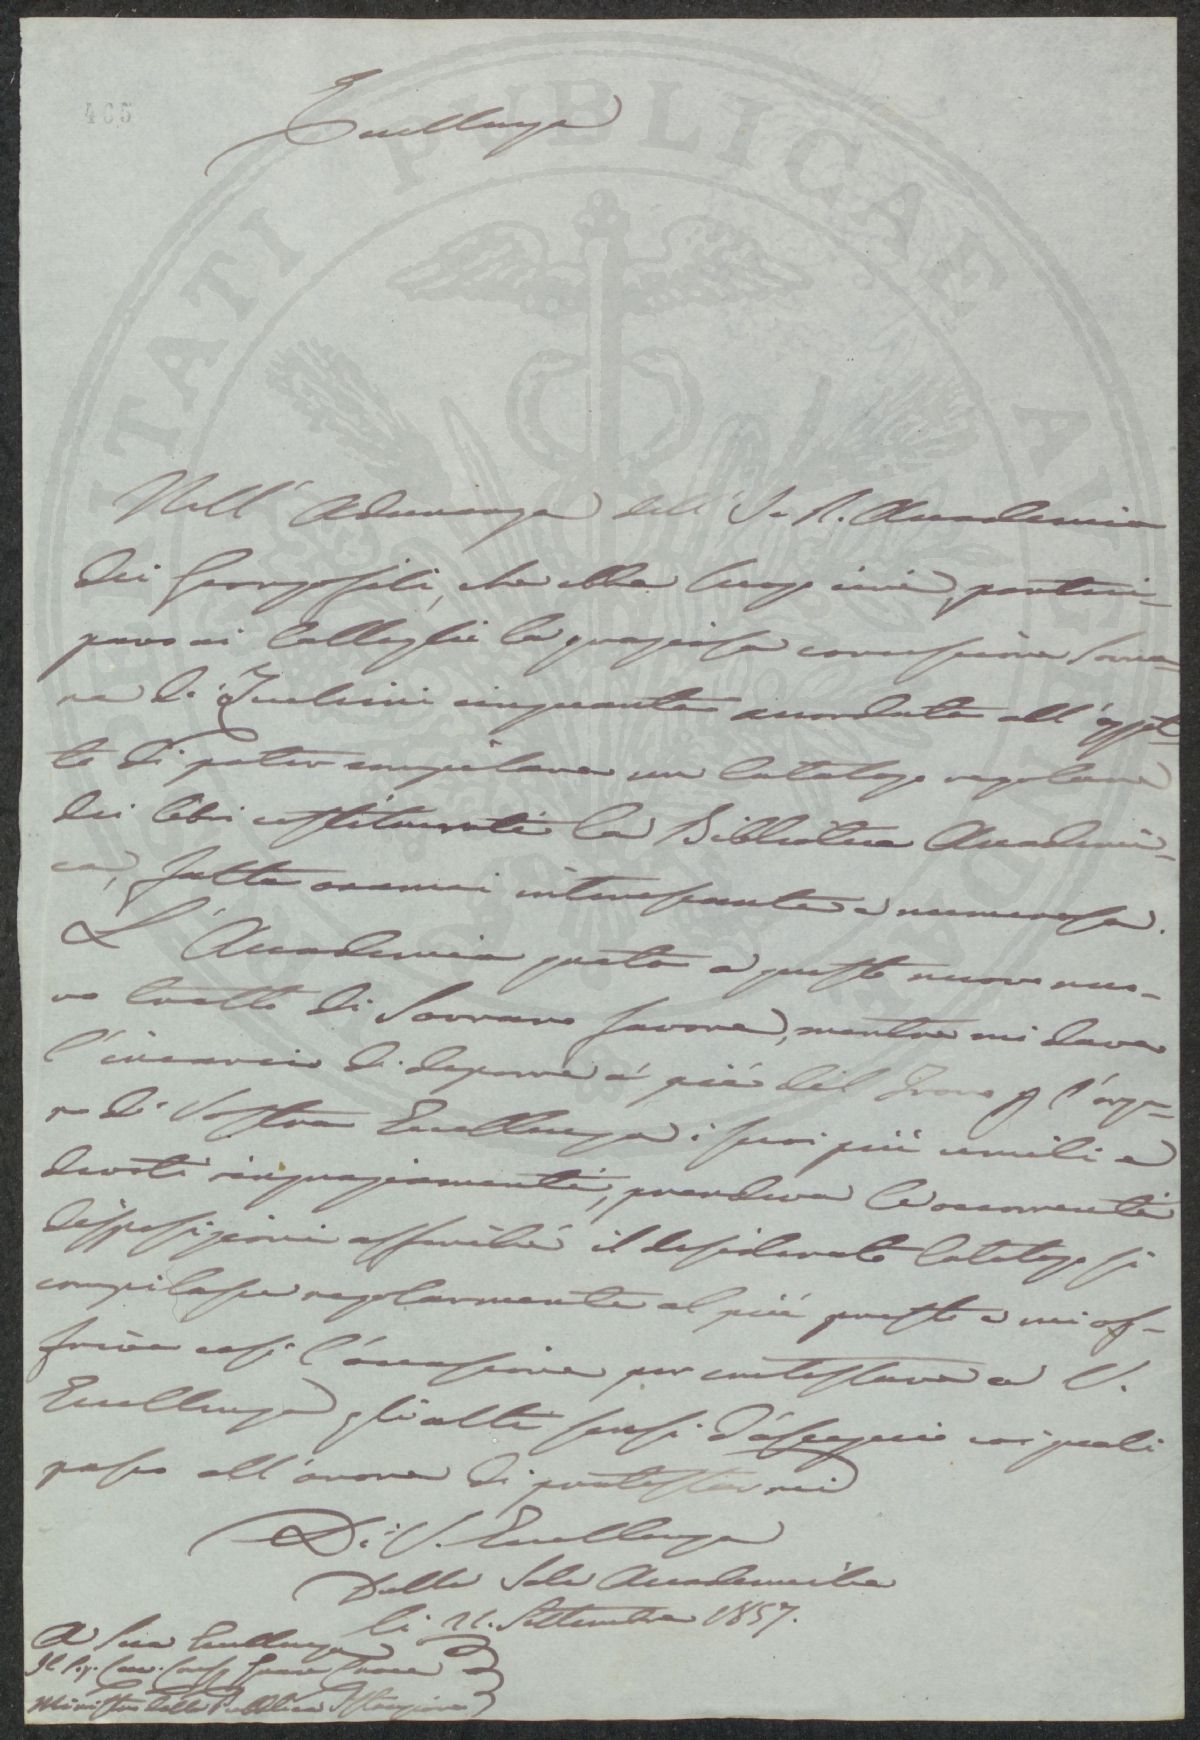 405
Eccellenza
Nell' Adunanza dell' I. e R. Accademia
dei Georgofili, che ebbe luogo ieri, parteci-
pavo ai Colleghi la graziosa concessione Sovra-
na di Zecchini cinquanta accordata all'ogget-
to di poter compilare un Catalogo regolare
dei libri costituenti la Biblioteca Accademi-
ca, fatta oramai interessante e numerosa.
L'Accademia grata a questo nuovo nuo-
vo tratto di Sovrano favore, mentre mi dava
l'incarico di deporre a' piè del Trono p l'orga-
no di Vostra Eccellenza i suoi più umili e
devoti ringraziamenti, prendeva le occorrenti
disposizioni affinchè il desiderato Catalogo si
compilasse regolarmente al più presto e mi of-
friva così l'occasione per contestare a V.
Eccellenza gli alti sensi d'ossequio coi quali
passo all'onore di protestarmi
Di V. Eccellenza
Dalle Sale Accademiche
li 21. Settembre 1857.
A Sua Eccellenza
Il Sig. Cav.
Ministro della Pubblica Istruzione
PUBLICAE